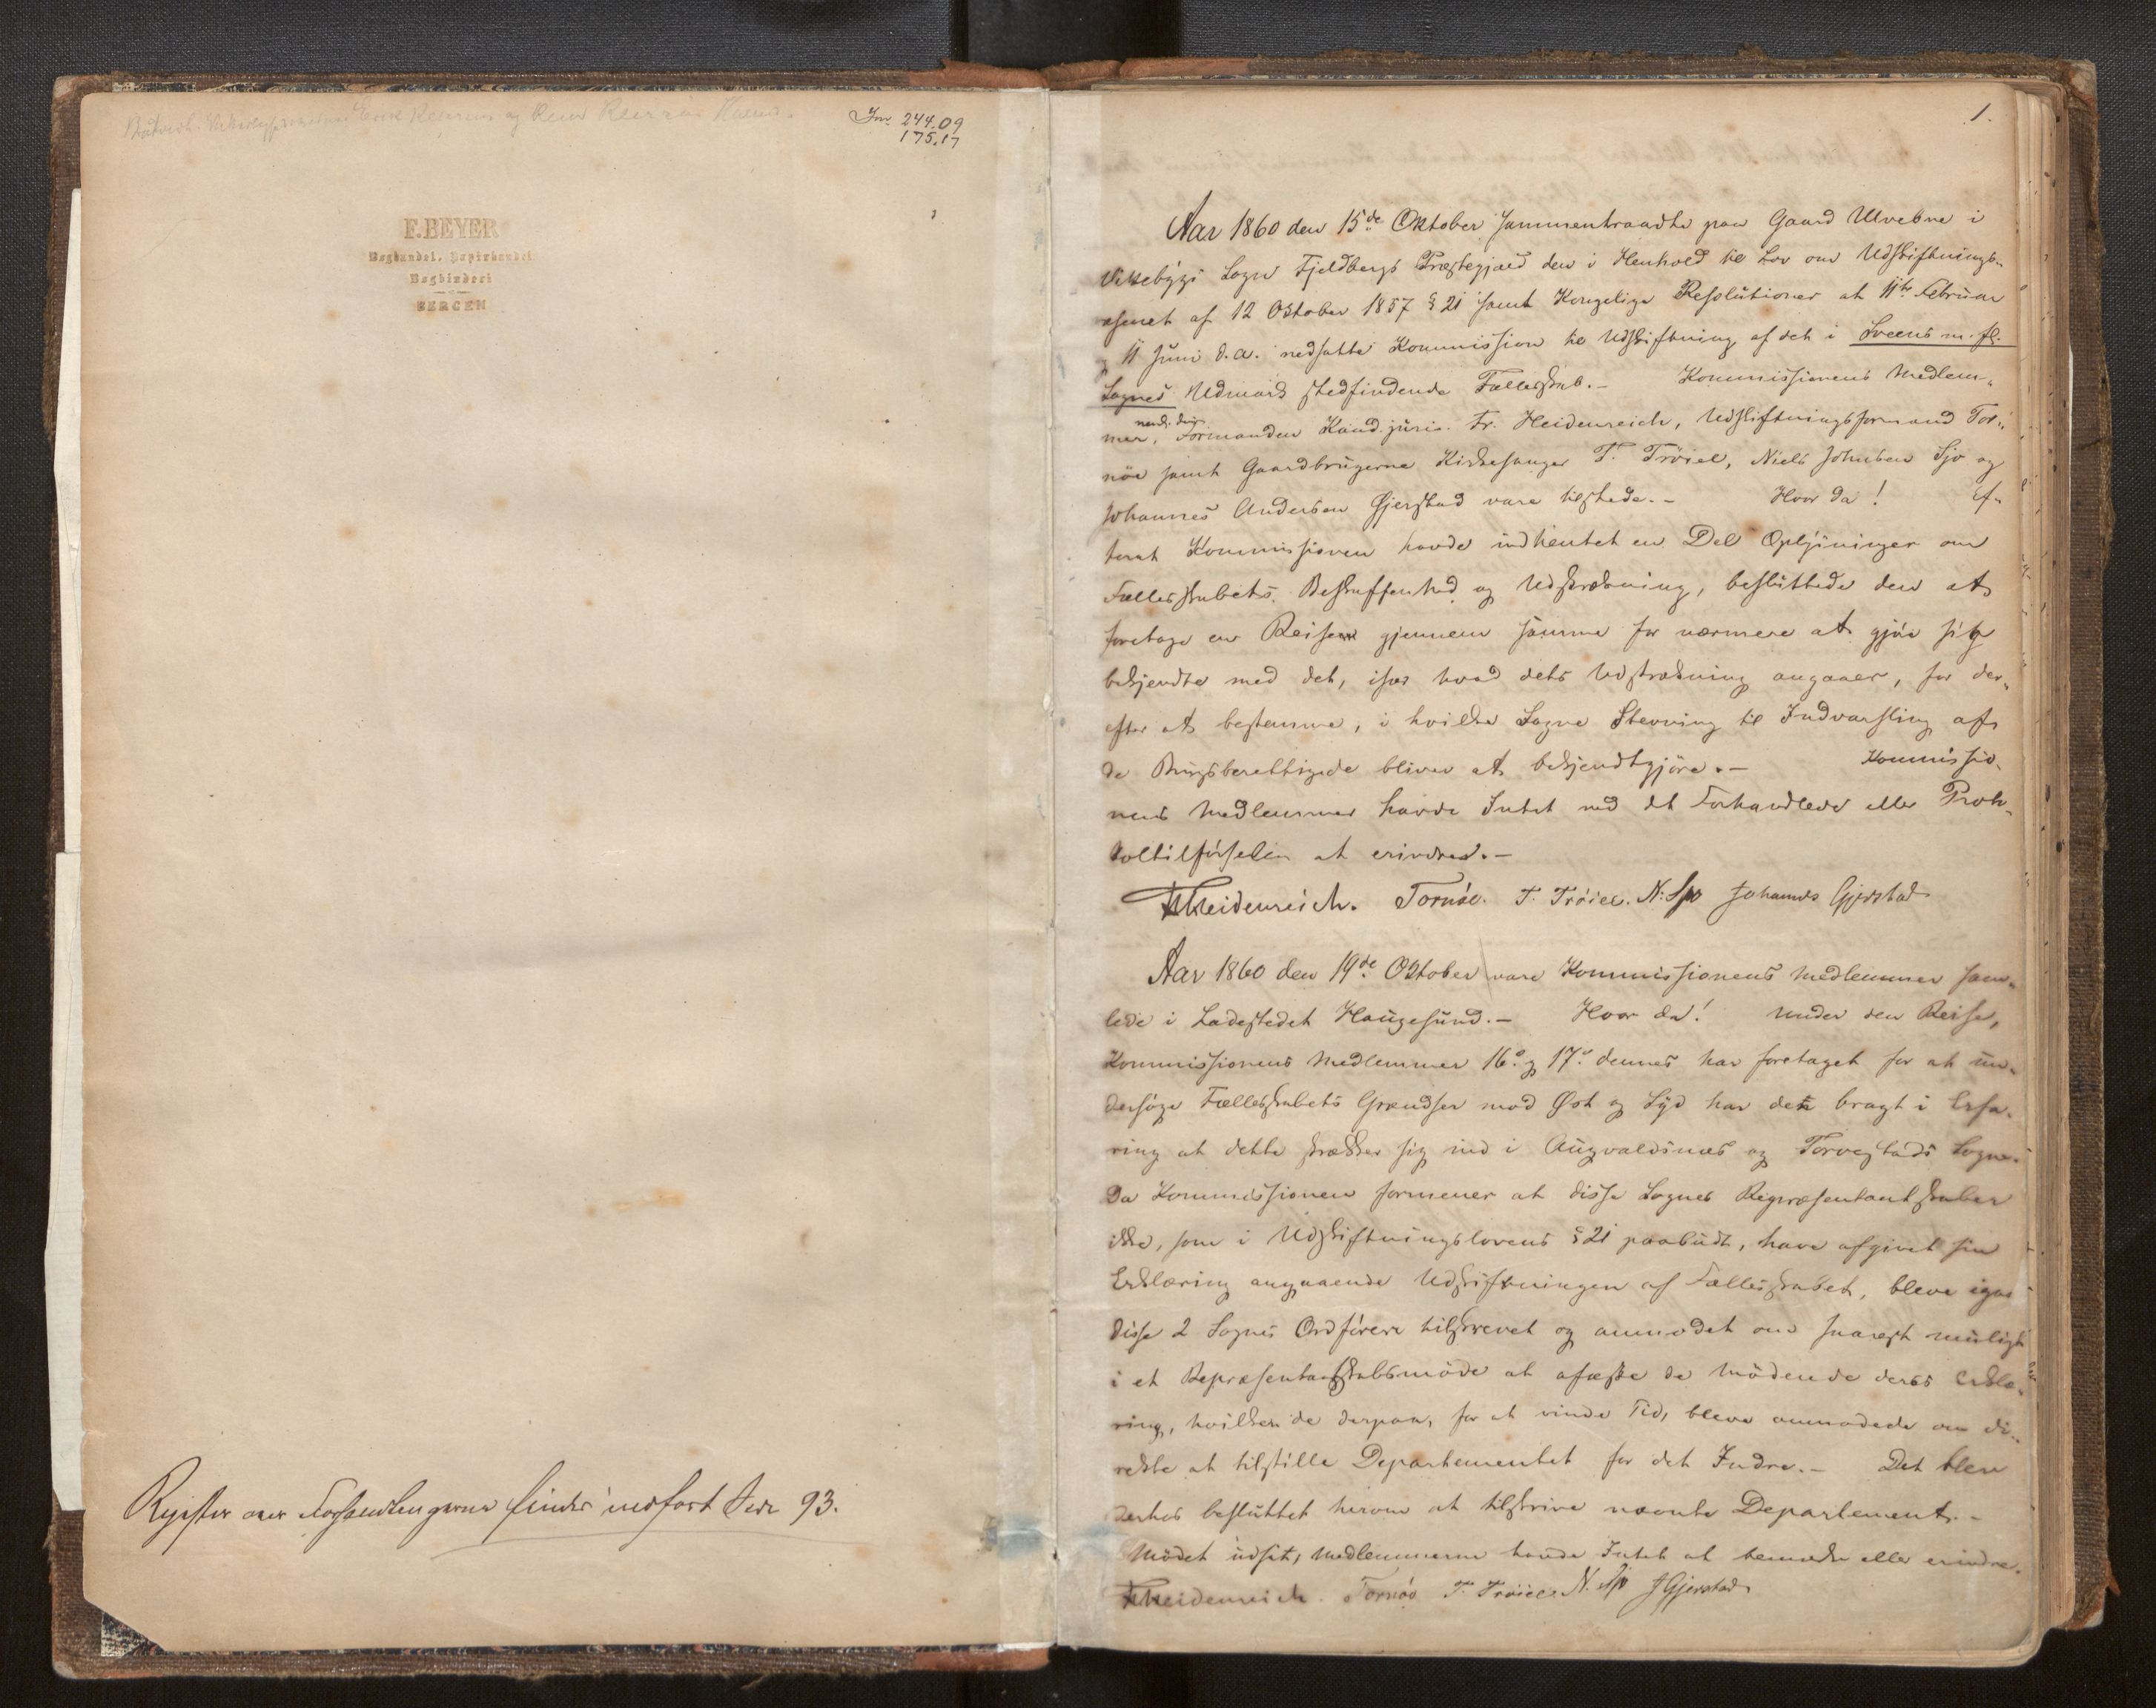 Erik Reiersen og
Inv. 244.09
175.17
F. BEYER
Boghandel, Papirhandel
Bogbinderi
BERGEN
Register over Forhandlingerne findes indført Side 93.
1.
Aar 1860 den 15de Oktober sammentraadte paa Gaard Ulvebne i
Vikebygs Sogn Fjeldbergs Præstegjæld den i Henhold til Lov om Udskiftnings-
væsenet af 12 Oktober 1857 § 21 samt Kongelige Resolutioner at 11te Februar
og 11 Juni d. A. nedsatte Kommission til Udskiftning af det i Sveens m. fl.
Sognes Udmark stedfindende Fællesskab. - Kommissionens Medlem-
mer, Formanden Kand. juris. Fr. Heidenreich, Udskiftningsformand Tor-
nöe samt Gaardbrugerne Kirkesanger T. Tröiel, Niels Johnsen Sjo og
Johannes Andersen Gjerstad vare tilstede. - Hvor da! Ef-
terat Kommissionen havde indhentet en Del Oplysninger om
Fællesskabets Beskaffenhed og Udstrækning, besluttede den at
foretage en Reise gjennem samme for nærmere at gjöre sig
bekjendte med det, især hvad dets Udstrækning angaaer, for der-
efter at bestemme, i hvilke Sogne Stevning til Indvarsling af
de Brugsberettigede bliver at bekjendtgjöre. - Kommissio-
nens Medlemmer havde Intet ved det Forhandlede eller Proto-
koltilförselen at erindre. -
Fr Heidenreich. Tornöe. T. Tröiel. N. Sjo Johannes Gjerstad
Aar 1860 den 19de Oktober vare Kommissionens Medlemmer sam-
lede i Ladestedet Haugesund. - Hvor da! Under den Reise,
Kommissionens Medlemmer 16o og 17o dennes har foretaget for at un-
dersöge Fællesskabets Grændser mod Øst og Syd har den bragt i Erfa-
ring at dette strækker sig ind i Augvaldsnæs og Torvestads Sogne.
Da Kommissionen formener at disse Sognes Repræsentantskaber
ikke, som i Udskiftningslovens § 21 paabudt, have afgivet sin
Erklæring angaaende Udskiftningen af Fællesskabet, bleve
disse 2 Sognes Ordförere tilskrevet og anmodet om snarest muligt
i et Repræsentantskabsmöde at afæske de Mödende deres Erklæ-
ring, hvilken de derpaa, for at vinde Tid, bleve anmodede om di-
rekte at tilstille Departementet for det Indre. - Det blev
derhos besluttet herom at tilskrive nævnte Departement. -
Mödet udsat, Medlemmerne havde Intet at bemærke eller erindre.
Fr Heidenreich. Tornöe T. Tröiel. N. Sjo J Gjerstad